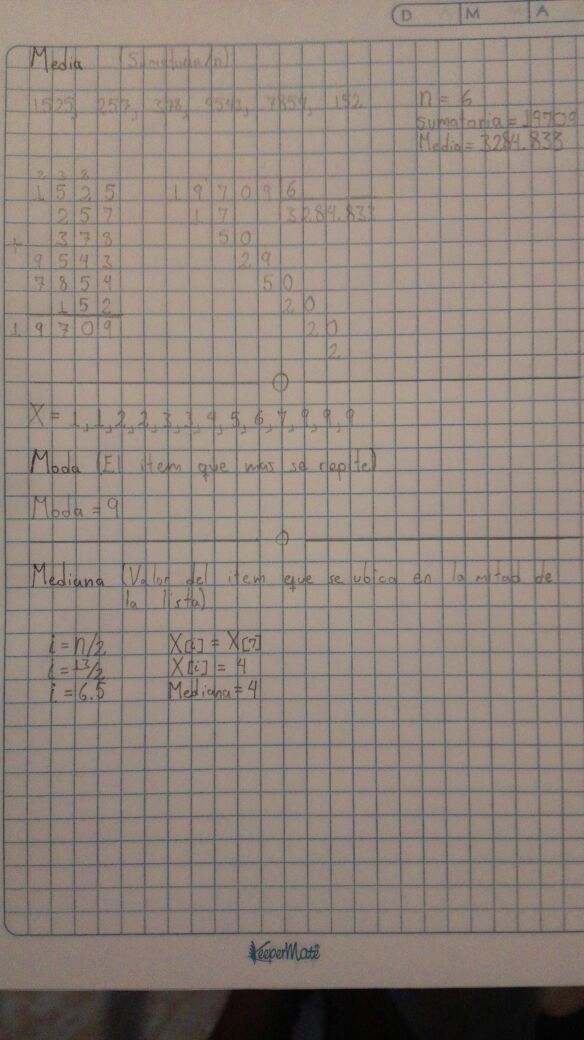 D M A
Media (Sumatoria/n)
1525, 257, 378, 9543, 7854, 152
n = 6
Sumatoria = 19709
Media = 3284.833
2 3 2
1 5 2 5
2 5 7
+ 3 7 8
9 5 4 3
7 8 5 4
1 5 2
1 9 7 0 9
1 9 7 0 9 6
1 7 3284.833
5 0
2 9
5 0
2 0
2 0
2
X = 1,1,2,2,3,3,4,5,6,7,9,9,9
Moda (El item que mas se repite)
Moda = 9
Mediana (Valor del item que se ubica en la mitad de
la lista)
i = n/2
i = 13/2
i = 6.5
X[i] = X[7]
X[i] = 4
Mediana = 4
KeeperMate